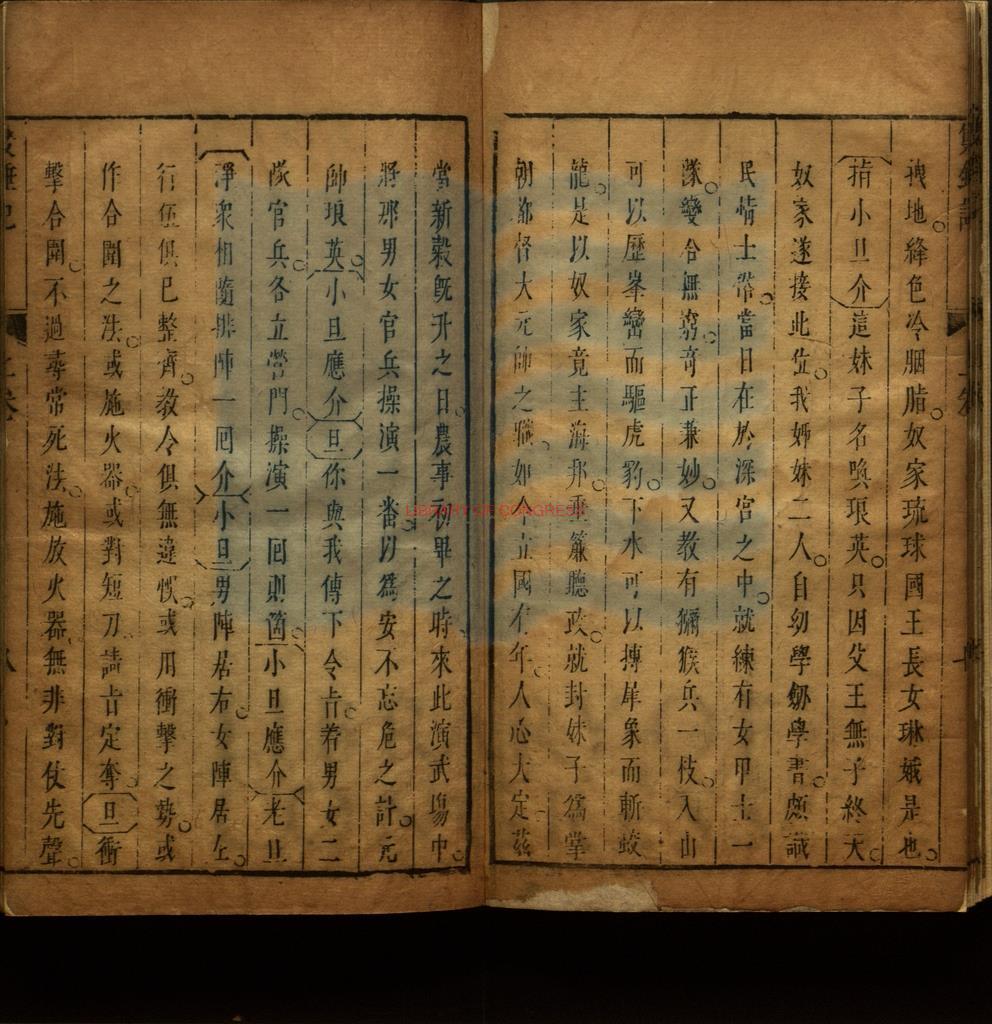 拽地絳色冷胭脂奴家琉球國王長女琳娥是也
指小旦介這妹子名喚琅英只因父王無子終天
奴家遂接此位我姊妹二人自幼學劒學書頗識
民情士常當日在於深宮之中就練有女甲士一
隊變合無窮奇正兼妙又教有獼猴兵一枝入山
可以歷峯巒而驅虎豹下水可以摶犀象而斬蛟
龍是以奴家竟主海邦垂簾聽政就封妹子為掌
朝都督大元帥之職如今立國有年人心大定茲
當新穀既升之日農事初畢之時來此演武塲中
將那男女官兵操演一番以爲安不忘危之計元
帥琅英小旦應介旦你與我傳下令吿若男女二
隊官兵各立營門操演一回則箇小旦應介老旦
淨衆相隨排陣一回介小旦男陣居右女陣居左
行伍俱已整齊教令俱無違悞或用衝擊之勢或
作合圍之法或施火器或對短刀請吿定奪旦衝
擊合圍不過尋常死法施放火器無非對仗先聲
LIBRARY OF CONGRESS